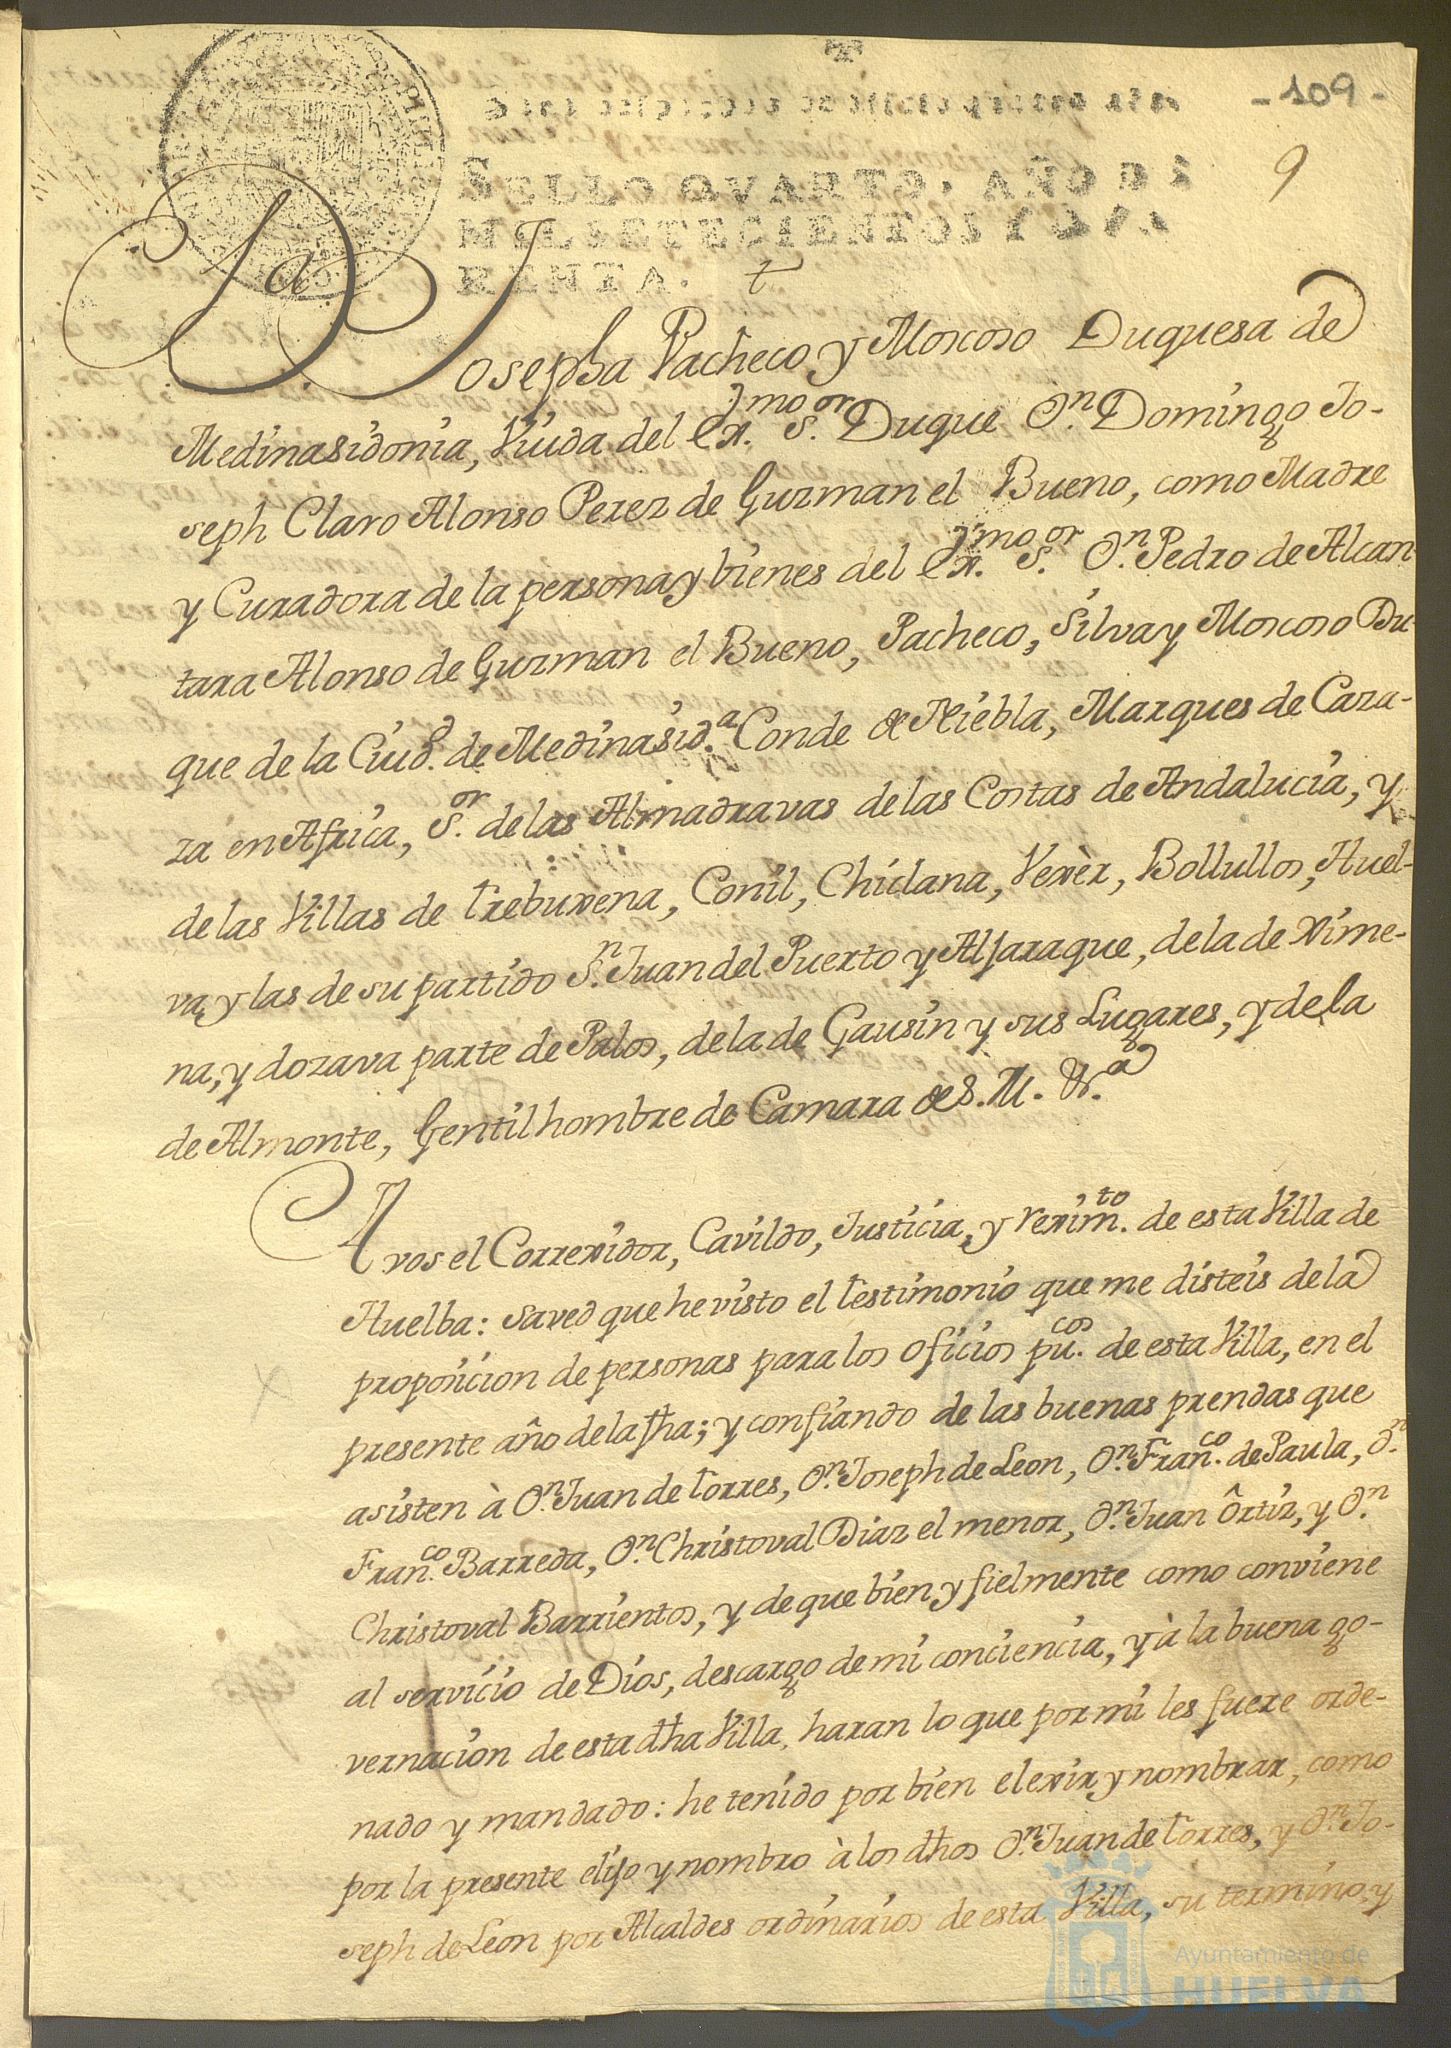 - 109 -
9
SELLO QVARTO, AÑO DE
MIL SETECIENTOS Y QVA
RENTA.
Da Josepha Pacheco y Moscoso Duquesa de
Medinasidonia, Viuda del Exmo. Sor. Duque Dn. Domingo Jo-
seph Claro Alonso Perez de Guzman el Bueno, como Madre
y Curadora de la persona y bienes del Exmo. Sor. Dn. Pedro de Alcan-
tara Alonso de Guzman el Bueno, Pacheco, Silva y Moscoso Du-
que de la Ciud. de Medinasida. Conde de Niebla, Marques de Caza-
za en Africa, Sor. de las Almadravas de las Costas de Andalucia, y
de las Villas de Trebuxena, Conil, Chiclana, Vexèr, Bollullos, Huel-
va, y las de su partido Sn. Juan del Puerto y Aljaraque, de la de Xime-
na, y dozava parte de Palos, de la de Gausin y sus Lugares, y de la
de Almonte, Gentilhombre de Camara de S. M. &a.
A vos el Correxidor, Cavildo, Justicia, y rexim.to de esta Villa de
Huelba: saved que he visto el testimonio que me disteis de la
proposicion de personas para los oficios pu.cos de esta Villa, en el
presente año de la fha; y confiando de las buenas prendas que
asisten à Dn. Juan de Torres, Dn. Joseph de Leon, Dn. Fran.co de Paula, Dn.
Fran.co Barreda, Dn. Christoval Diaz el menor, Dn. Juan Ortiz, y Dn.
Christoval Barrientos, y de que bien y fielmente como conviene
al servicio de Dios, descargo de mi conciencia, y à la buena go-
vernacion de esta dha Villa, haran lo que por mi les fuere orde-
nado y mandado: he tenido por bien elexir y nombrar, como
por la presente elijo y nombro à los dhos Dn. Juan de Torres, y Dn. Jo-
seph de Leon por Alcaldes ordinarios de esta Villa, su termino, y
Ayuntamiento de
HUELVA